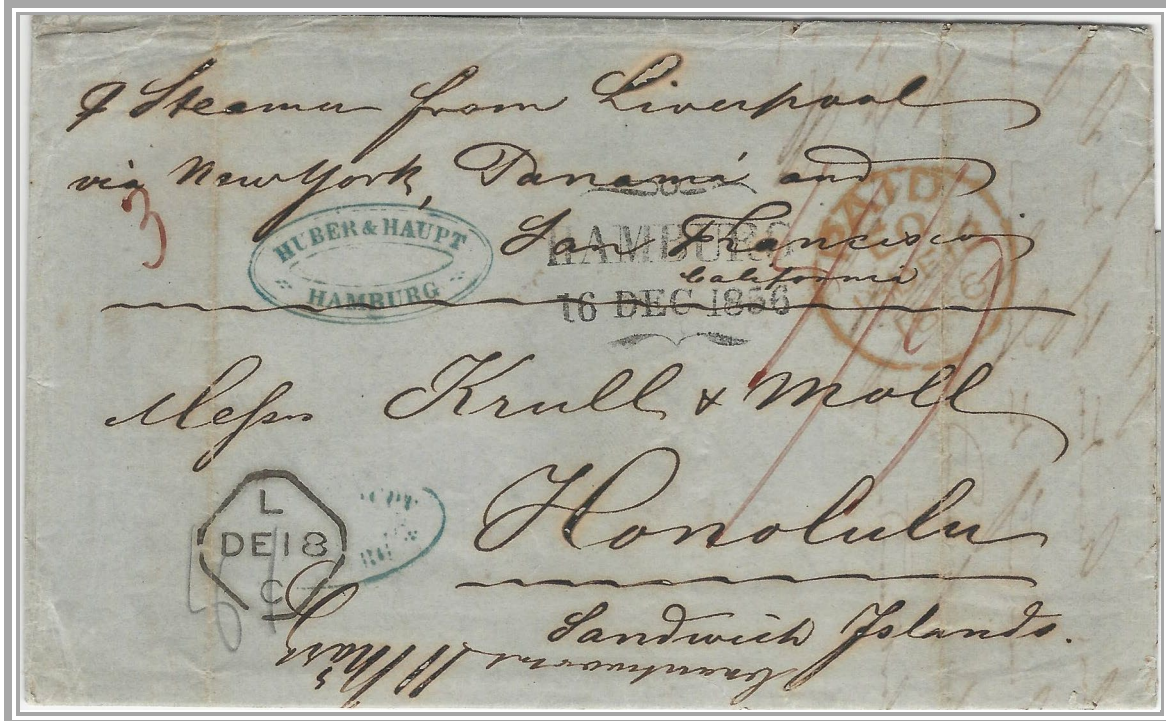 Steamer from Liverpool
via New York, Panamá and
San Francisco
California
3
HUBER & HAUPT
HAMBURG
HAMBURG
16 DEC 1856
PAID
Messrs Krull & Moll
Honolulu
Sandwich Islands.
L
DE 18
C